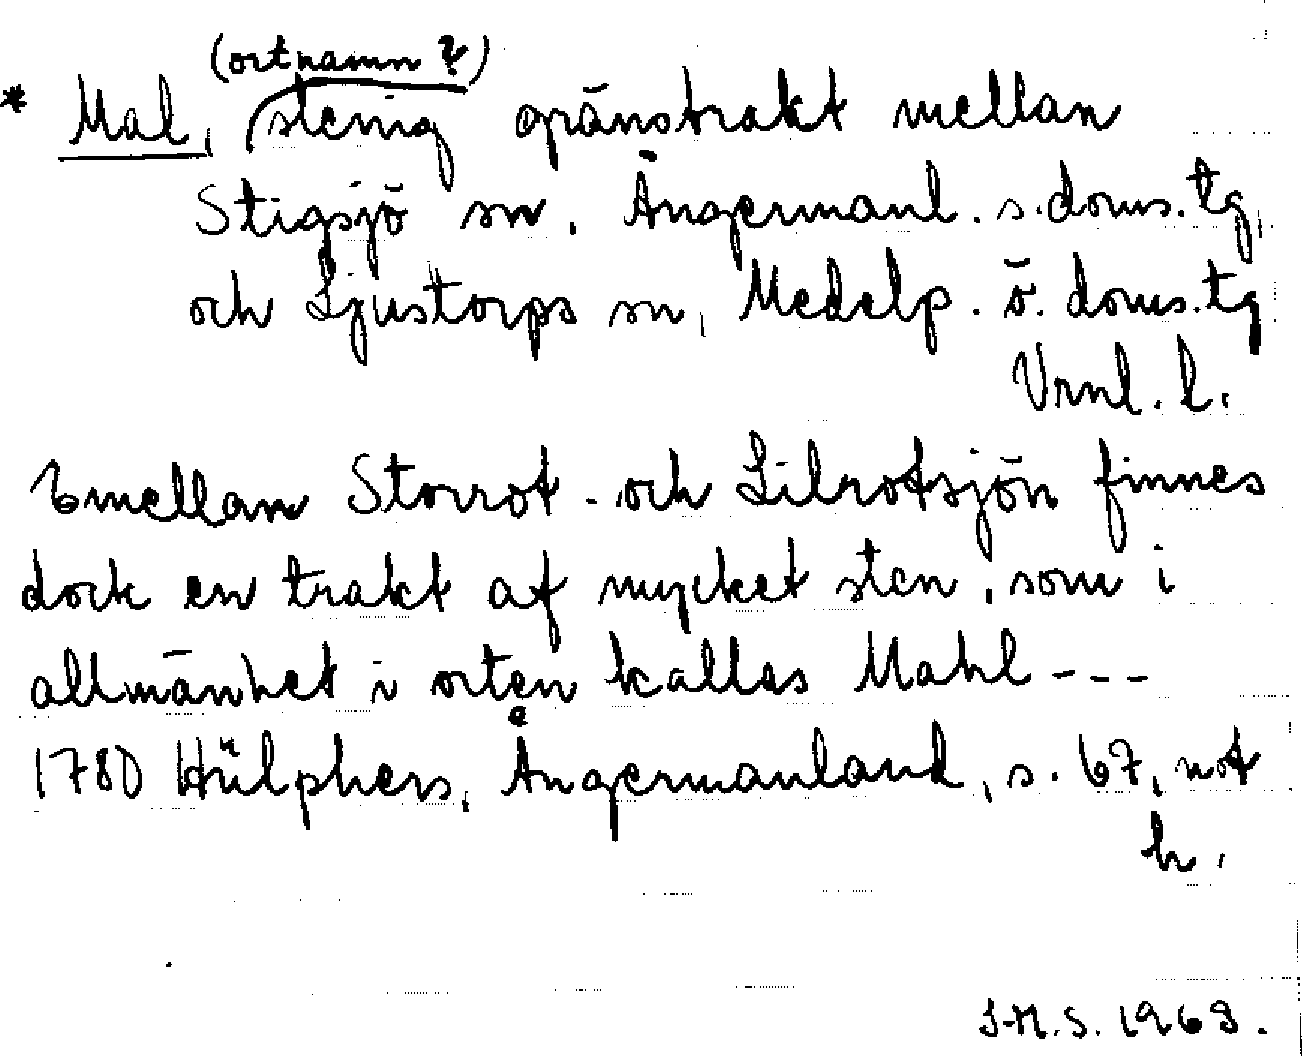 (ortnamn?)
* Mal, stenig gränstrakt mellan
Stigsjö sn, Ångermanl. s. doms. tg,
och Ljustorps sn, Medelp. ö. doms. tg
Vrnl. l.
Emellan Storrot- och Lilrotsjön finnes
dock en trakt af mycket sten, som i
allmänhet i orten kallas Mahl ---
1780 Hülphers, Ångermanland, s. 67, not
h.
J-H. S. 1968.